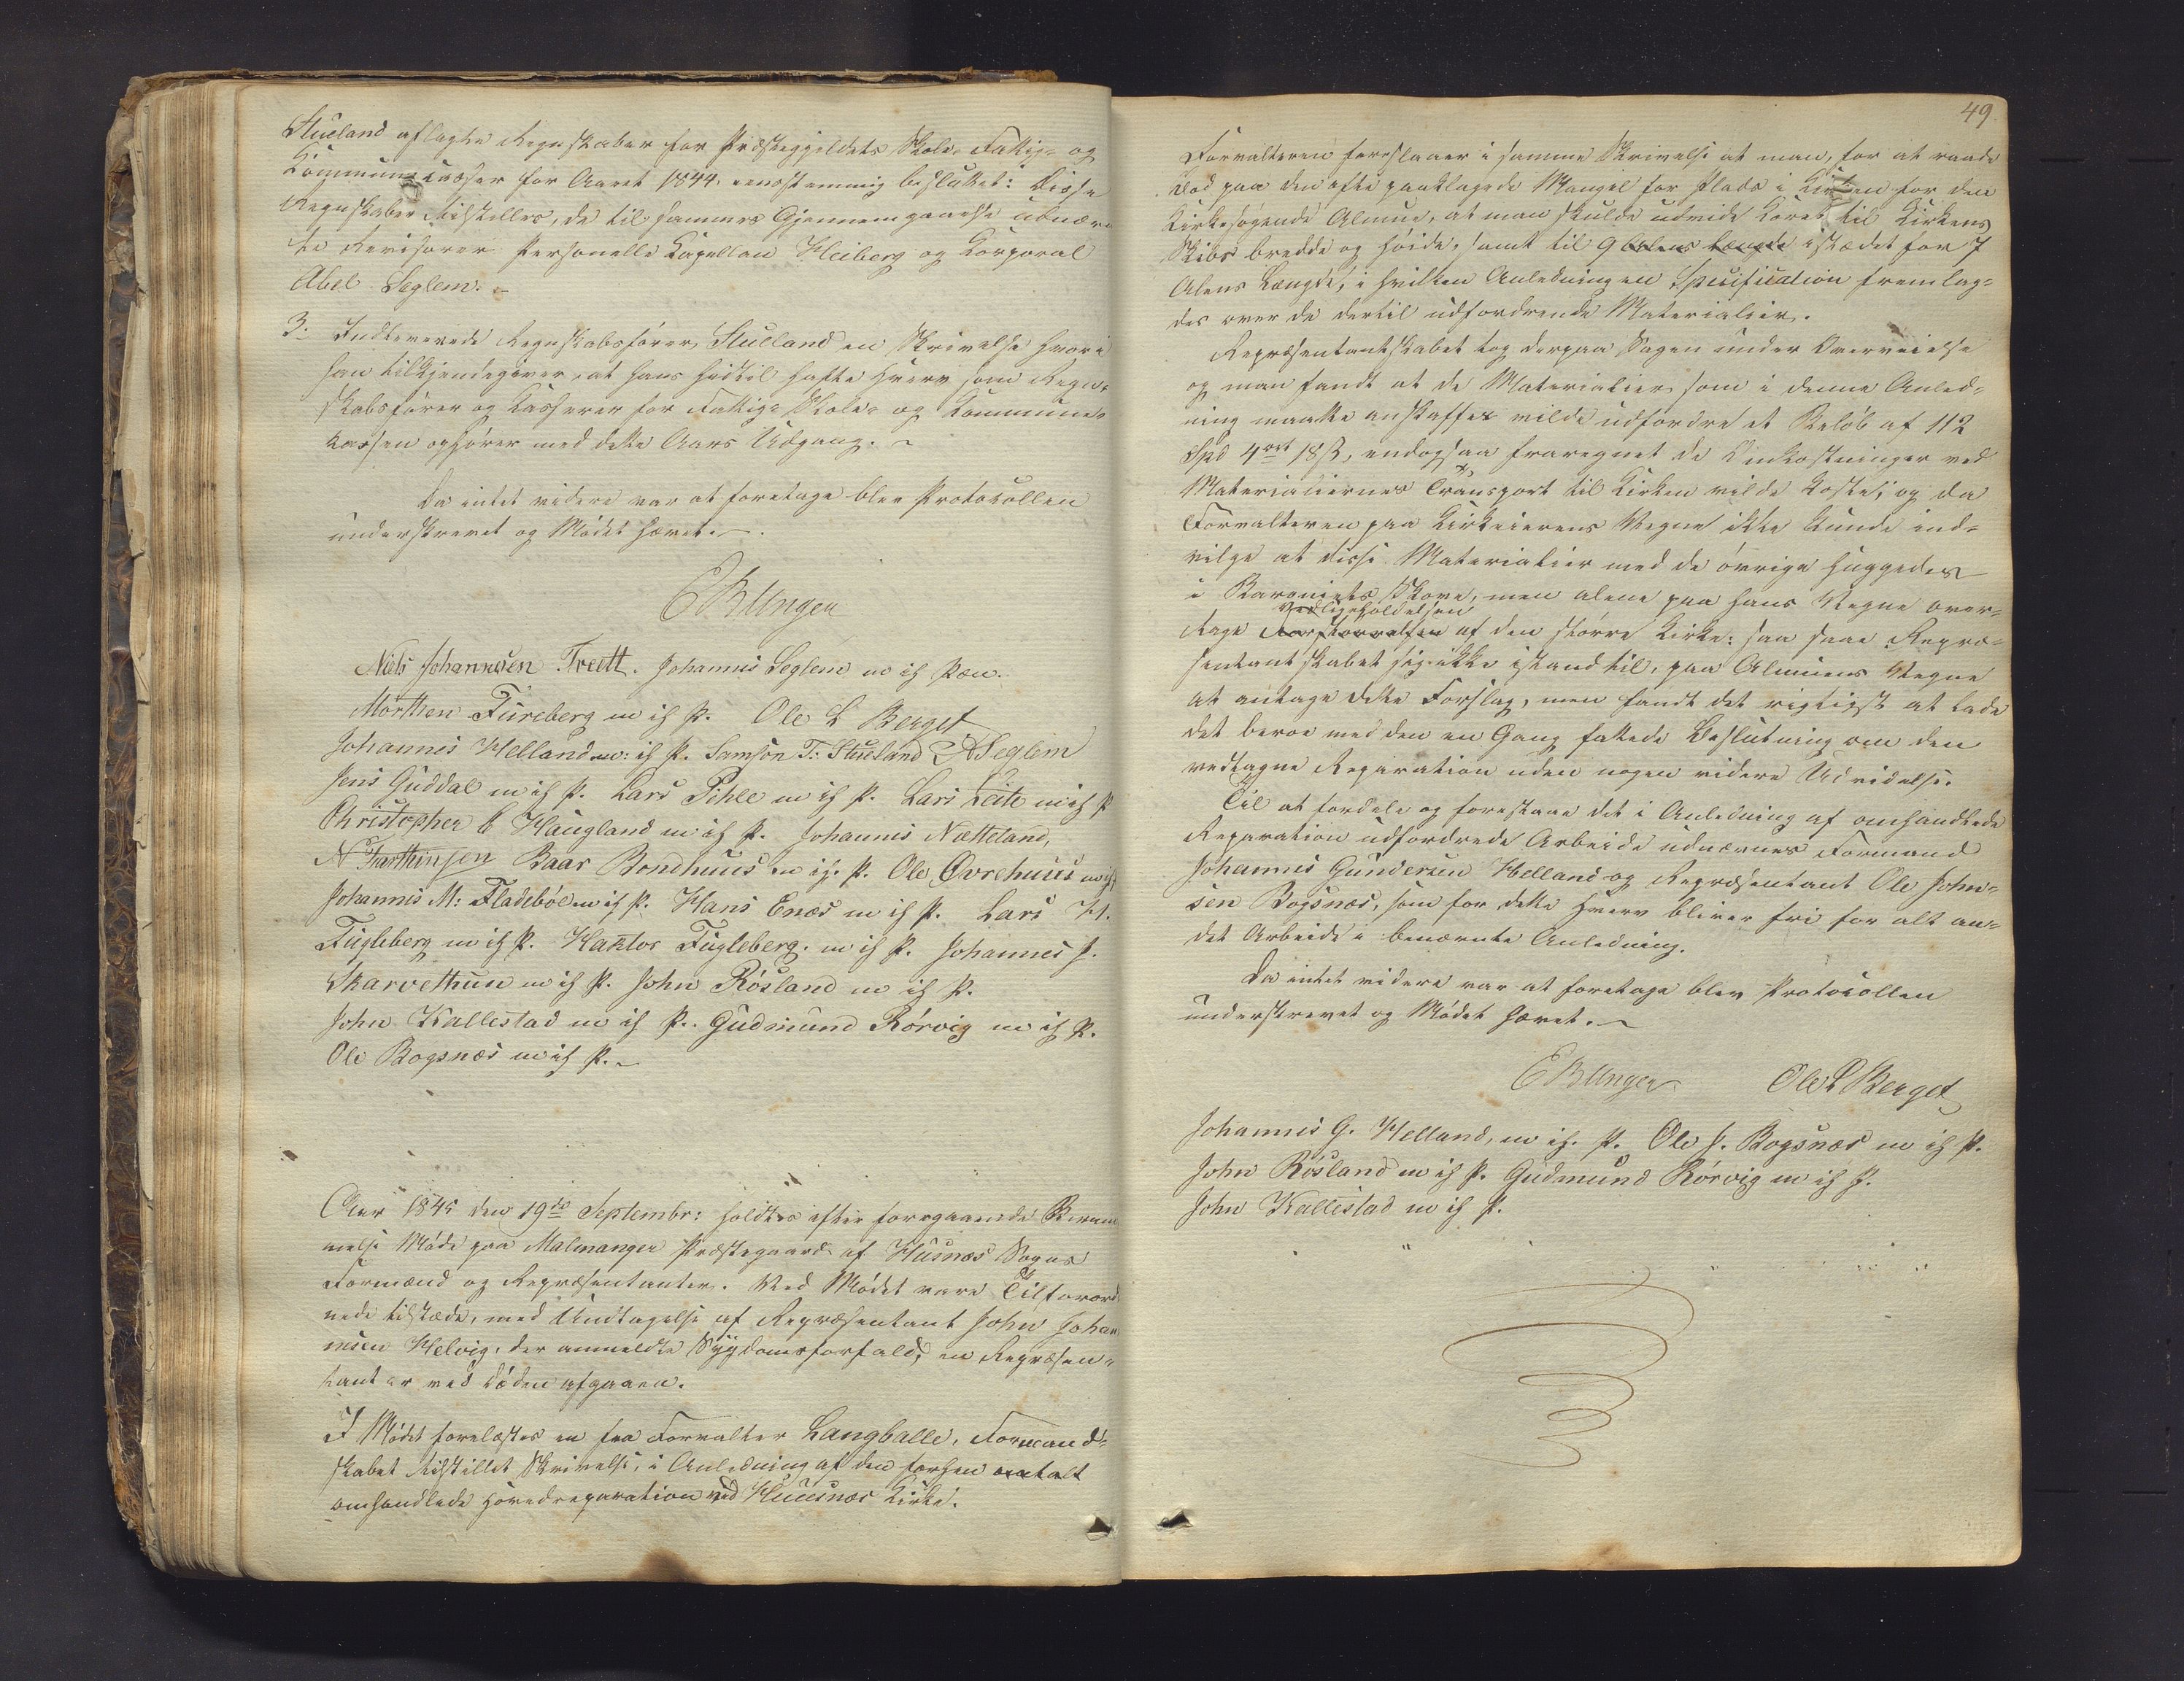 Stueland aflagte Regnskaber for Præstegjeldets Skole- Fattig- og
Kommunecasser for Aaret 1844, eenstemmig besluttet: Disse
Regnskaber tilstilles, de til sammes Gjennemgaaelse udnævn
te Revisorer Personelle Capellan Heiberg og Korporal
Abel Seglem. –
3. Indleverede Regnskabsfører Stueland en Skrivelse hvori
han tilkjendegiver, at hans hidtil hafte Hverv som Regn-
skabsfører og Casserer for Fattig- Skole- og Kommune-
kassen ophører med dette Aars Udgang. –
Da intet videre var at foretage blev Protocollen
underskrevet og Mødet hævet. –
E B Unger
Niels Johannesen Treett. Johannis Seglem m ih Pæn.
Morthen Fureberg m ih P. Ole L Berget
Johannis Helland m: ih P. Samson T: Stueland A Seglem
Jens Guddal m ih P. Lars Pihle m ih P. Lars Leite m ih P
Christopher C Haugland m ih P. Johannis Nætteland,
N Torsteinsen Baar Bondhuus m ih. P. Ole Øvrehuus m ih
Johannis M: Fladebøe m ih P. Hans Enæs m ih P. Lars H.
Fugleberg m ih P. Haktor Fugleberg. m ih P. Johannes J.
Skarvethun m ih P. John Røsland m ih P.
John Kallestad m ih P.. Gudmund Rørvig m ih P.
Ole Bogsnæs m ih P. –
Aar 1845 den 19de Septembr: holdtes efter foregaaende Beram
melse Møde paa Malmanger Præstegaard af Husnæs Sogns
Formænd og Repræsentanter. Ved Mødet vare Tilforord
nede tilstæde, med Undtagelse af Repræsentant John Johan
nesen Helvig, der anmeldte Sygdomsforfald; en Repræsen-
tant er ved Døden afgaaen.
I Mødet forelæstes en fra Forvalter Langballe, Formand-
skabet tilstillet Skrivelse, i Anledning af den forhen omtalt
omhandlede Hovedreparation ved Huusnæs Kirke.
49.
Forvalteren foreslaaer i samme Skrivelse at man, for at raade
Bod paa den ofte paaklagede Mangel for Plads i Kirken for den
Kirkesøgende Almue, at man skulde udvide Koret til Kirkens
Skibs bredde og høide, samt til 9 Alens længde istædet for 7
Alens Længde, i hvilken Anledning en Specification fremlag-
des over de dertil udfordrende Materialier.
Repræsentantskabet tog derpaa Sagen under Overveielse
og man fandt at de Materialier som i denne Anled-
ning maatte anskaffes vilde udfordre et Beløb af 112
Spd 4ort 18 ß, endogsaa fraregnet de Omkostninger ved
Materialiernes Transport til Kirken vilde koste; og da
Forvalteren paa Kirkeierens Vegne ikke kunde ind-
vilge at disse Materialier med de øvrige huggedes
i Baroniets Skove, men alene paa hans Vegne over-
Vedligeholdelsen
tage Forstørrelsen af den større Kirke: saa saae Repræ-
sentantskabet sig ikke istand til, paa Almuens Vegne
at antage dette Forslag, men fandt det rigtigst at lade
det beroe med den en Gang fattede Beslutning om den
vedtagne Reparation uden nogen videre Udvidelse.
Til at fordele og forestaae det i Anledning af omhandlede
Reparation udfordrede Arbeide udnævnes Formand
Johannis Gundersen Helland og Repræsentant Ole John-
sen Bogsnæs, som for dette Hverv bliver fri for alt an-
det Arbeide i benævnte Anledning.
Da intet videre var at foretage blev Protocollen
underskrevet og Mødet hævet. –
E B Unger Ole L Berget
Johannis G. Helland, m ih. P. Ole J. Bogsnæs m ih P.
John Røsland m ih P. Gudmund Rørvig m ih P.
John Kallestad m ih P.